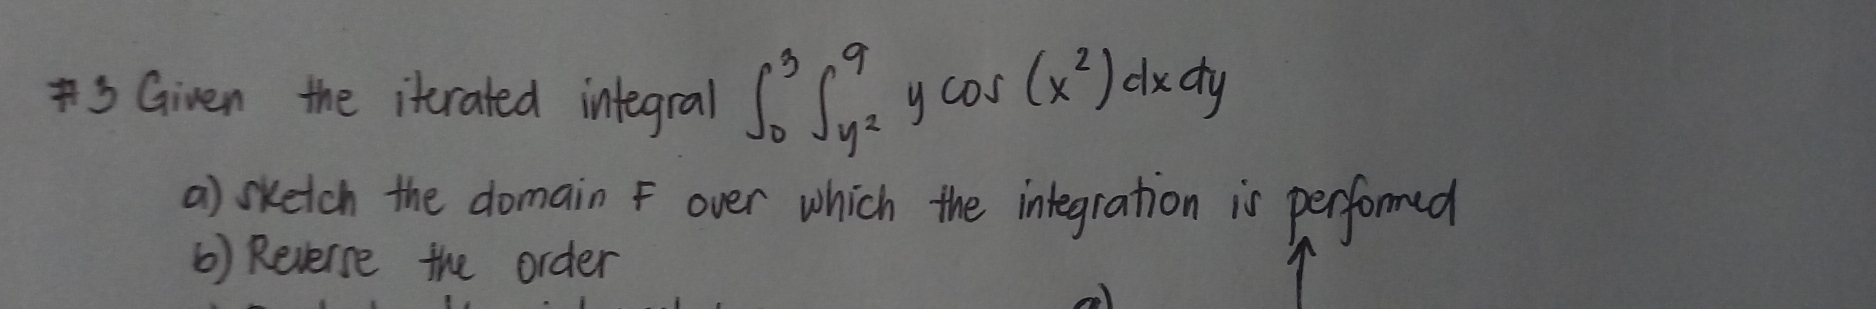 #3 Given the iterated integral ∫₀³ ∫_{y²}^{9} y cos (x²) dx dy
a) sketch the domain F over which the integration is performed
b) Reverse the order
a)